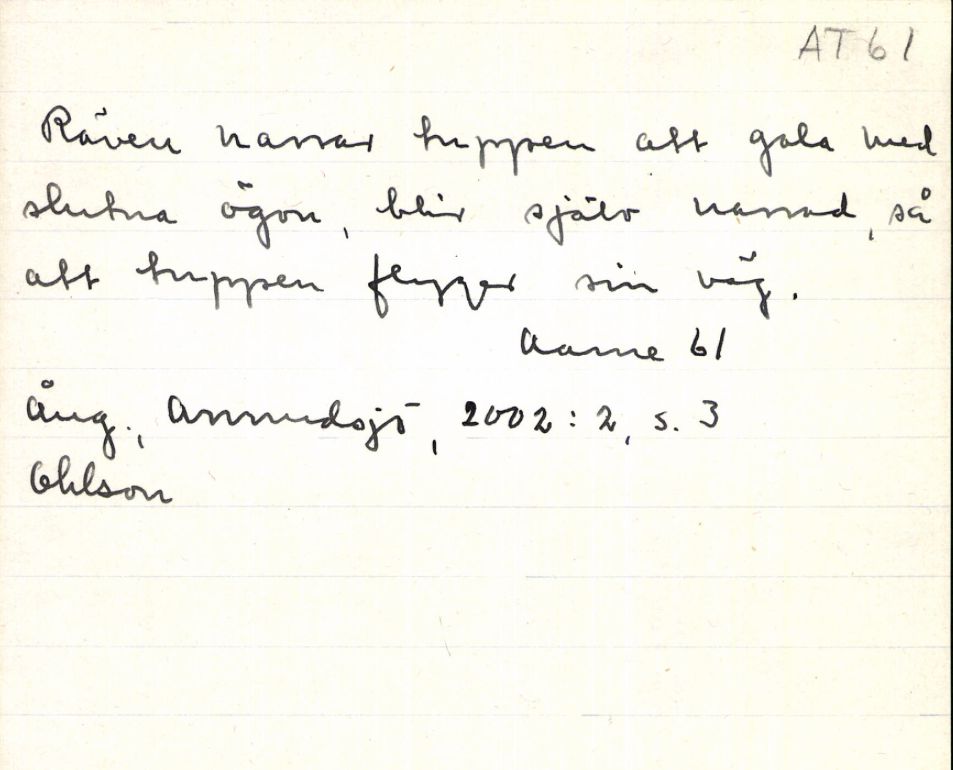 AT 61
Räven narrar tuppen att gala med
slutna ögon, blir själv narrad, så
att tuppen flyger sin väg.
Aarne 61
Ång., Anundsjö, 2002:2, s. 3
Ohlson